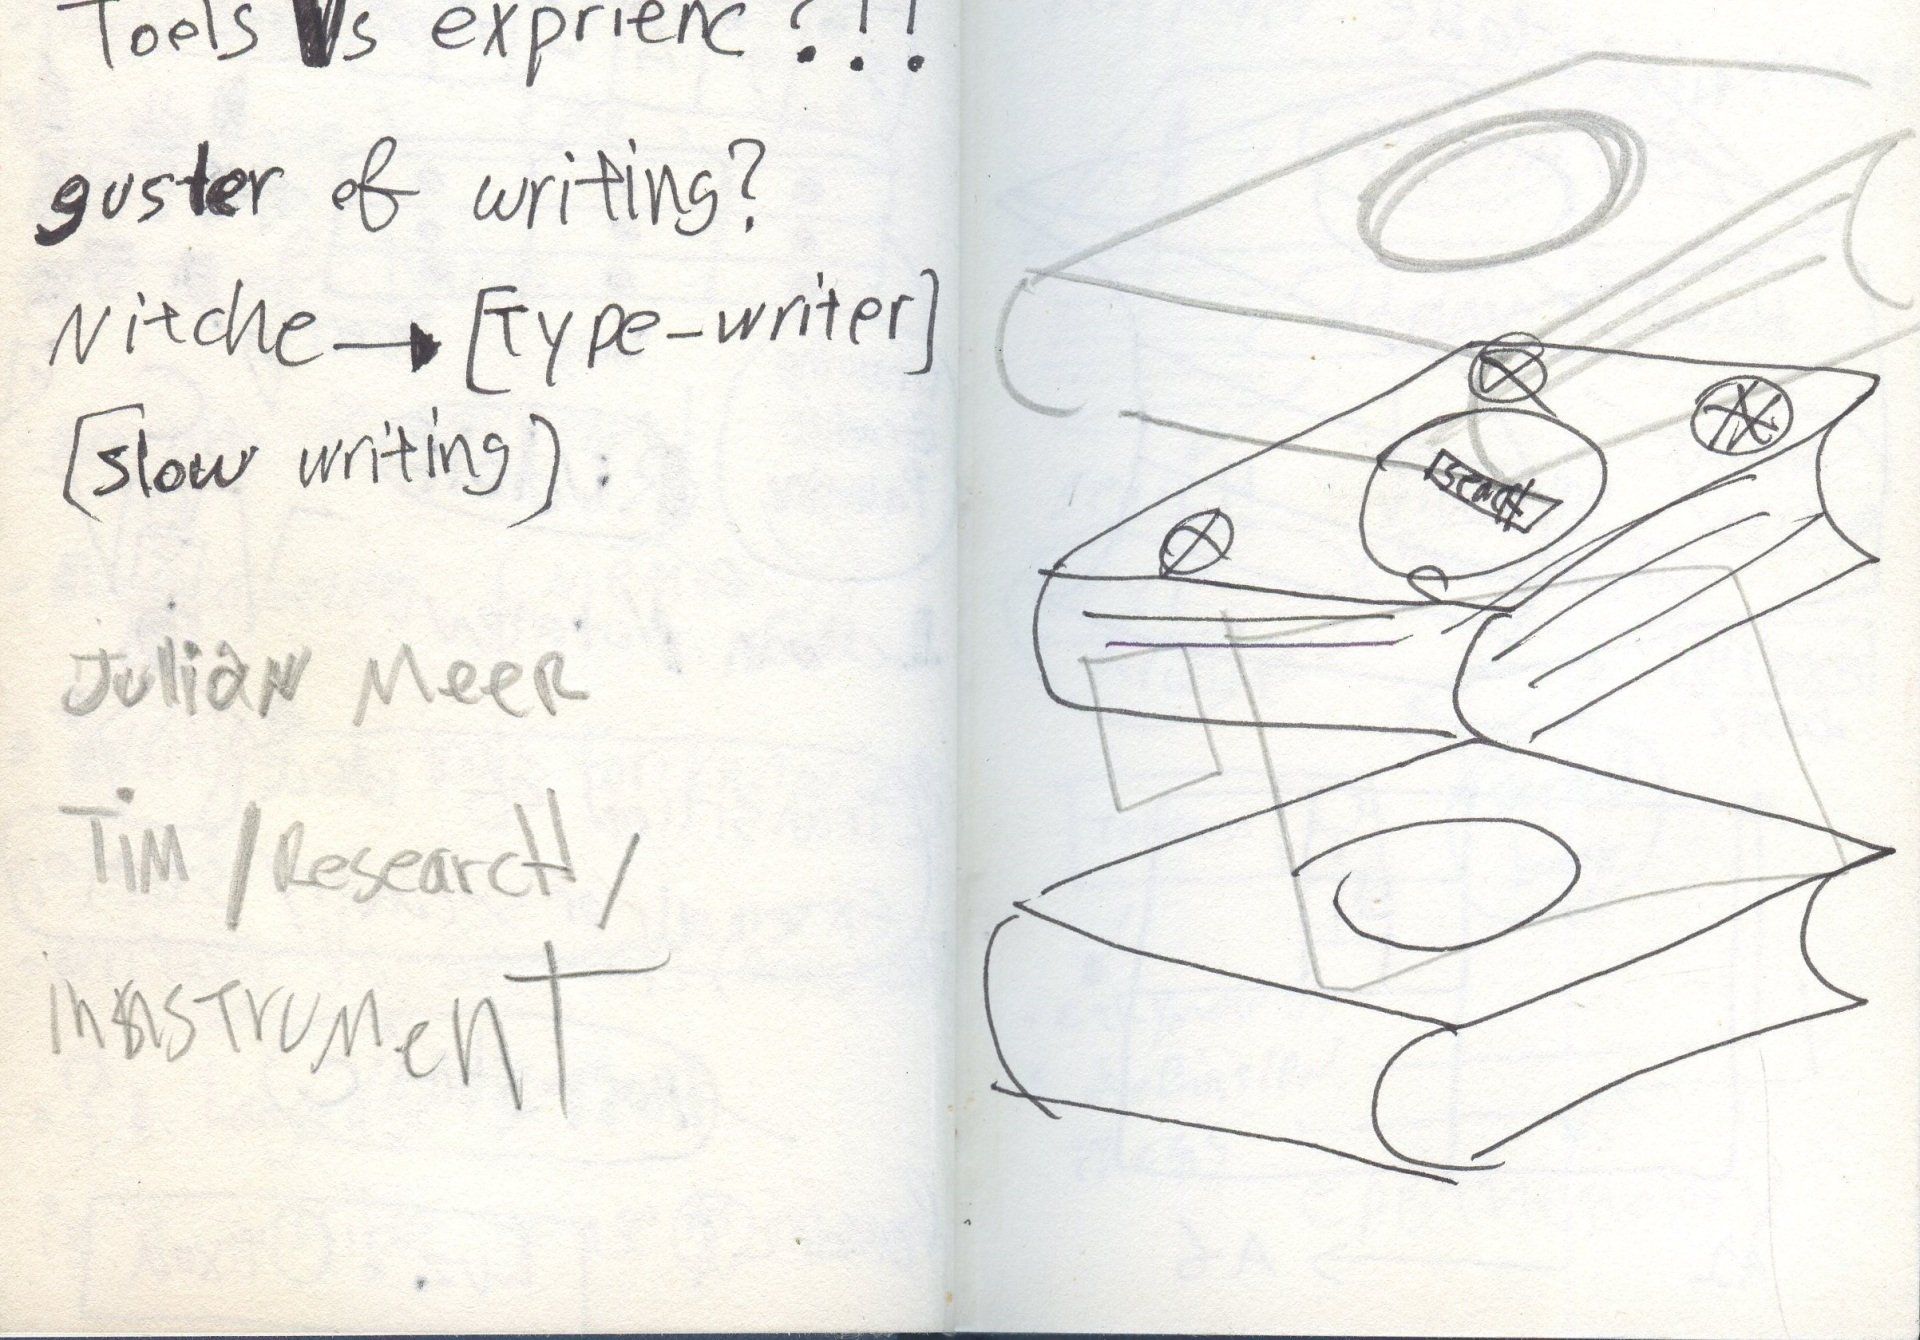 Toels Vs exprienc ?!!
guster of writing?
Nitche → [Type-writer]
[slow writing].
Julian Meer
Tim / Research /
search